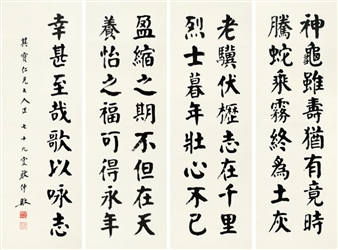 神龜雖壽猶有竟時
騰蛇乘霧終爲土灰
老驥伏櫪志在千里
烈士暮年壯心不已
盈縮之期不但在天
養怡之福可得永年
幸甚至哉歌以咏志
其寶仁兄大人正 七十九叟